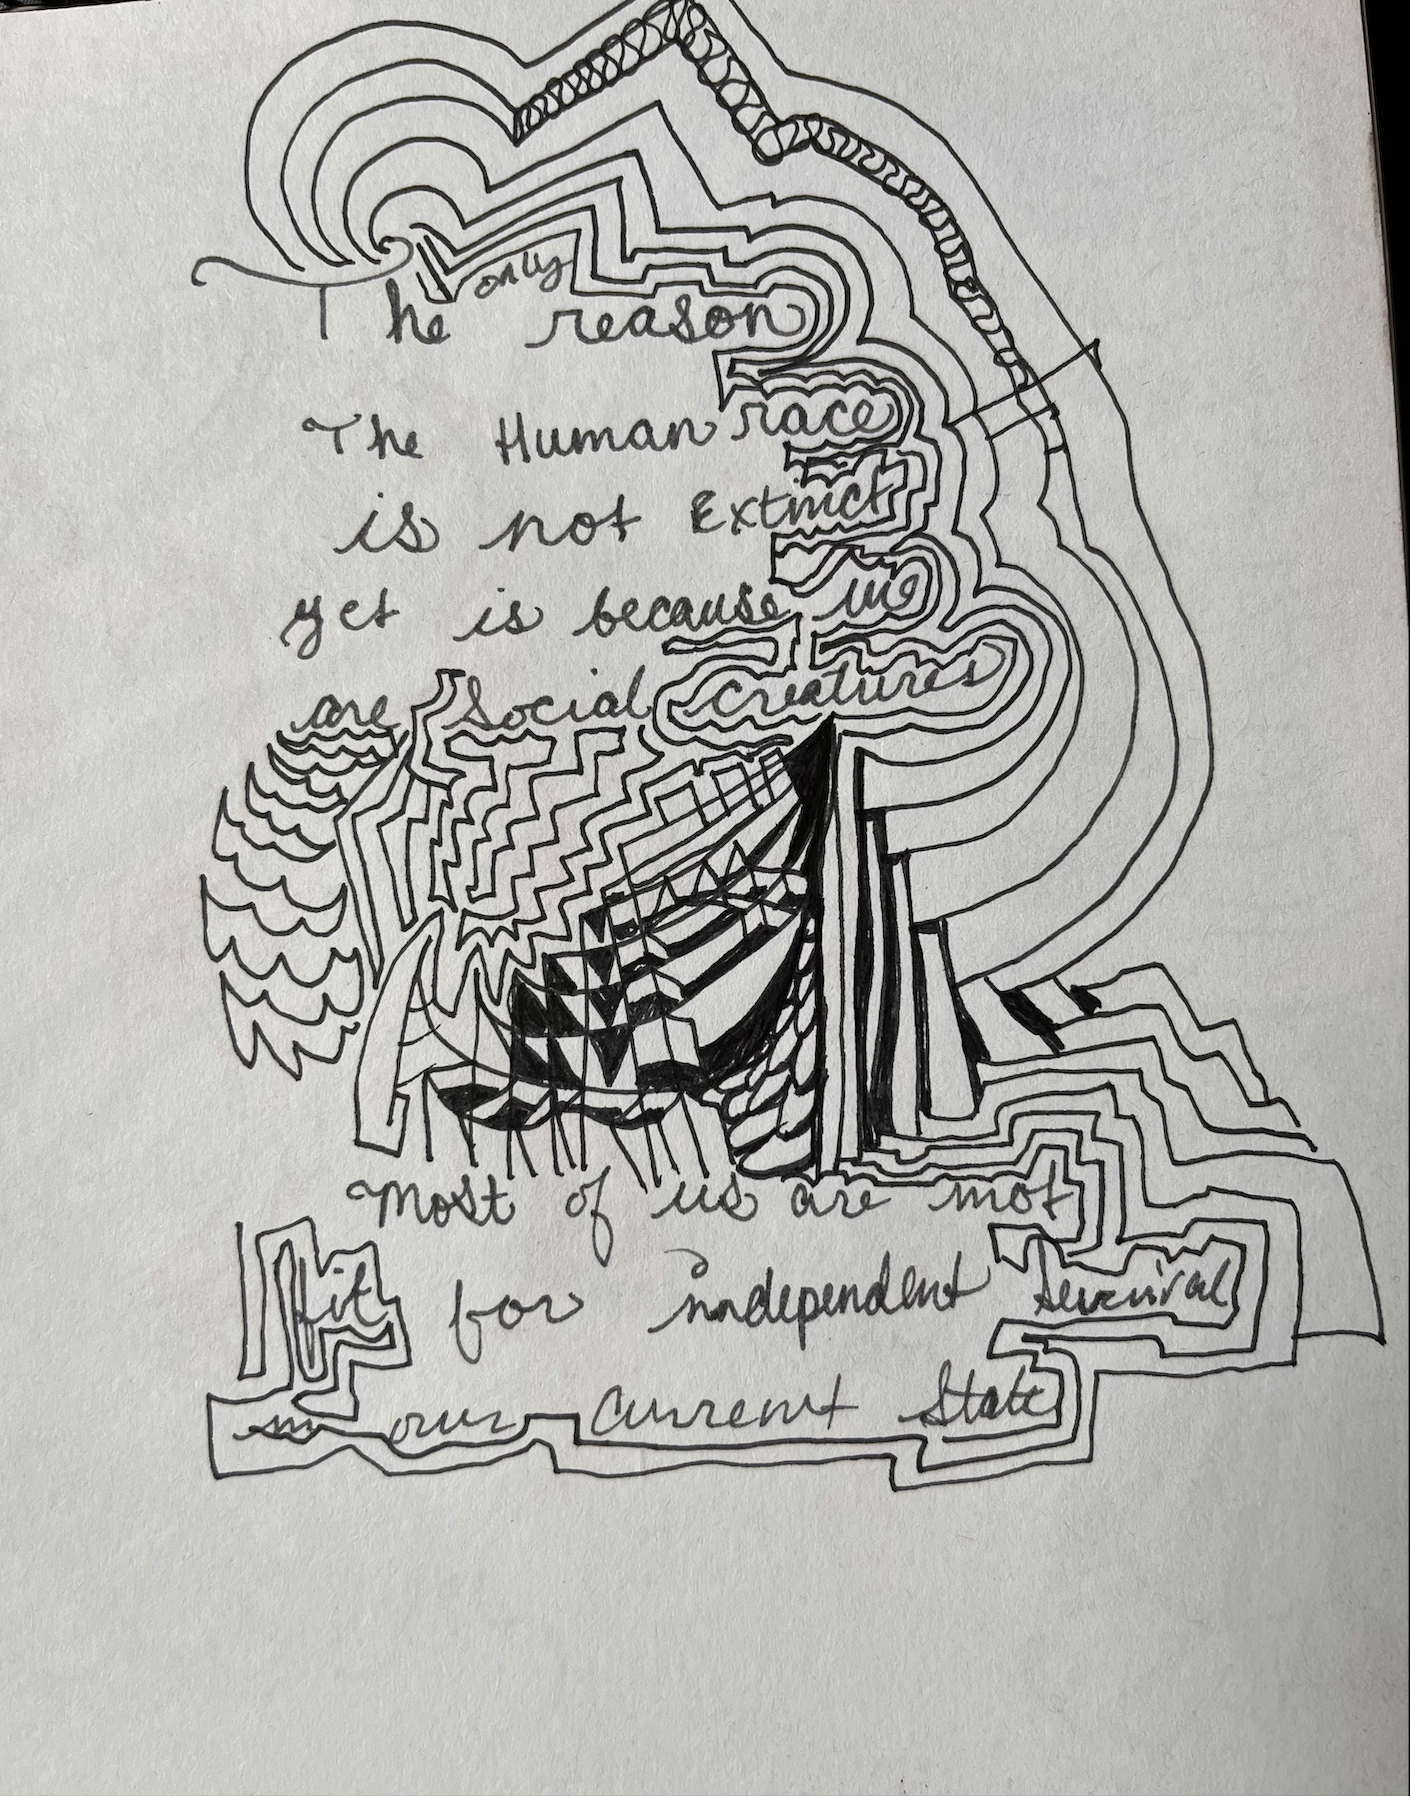 The only reason
The Human race
is not Extinct
yet is because we
are Social creatures
Most of us are not
fit for independent survival
in our current State